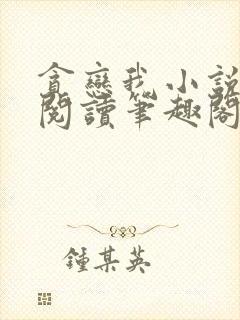 貪戀我小說
閱讀筆趣閣
鍾某英